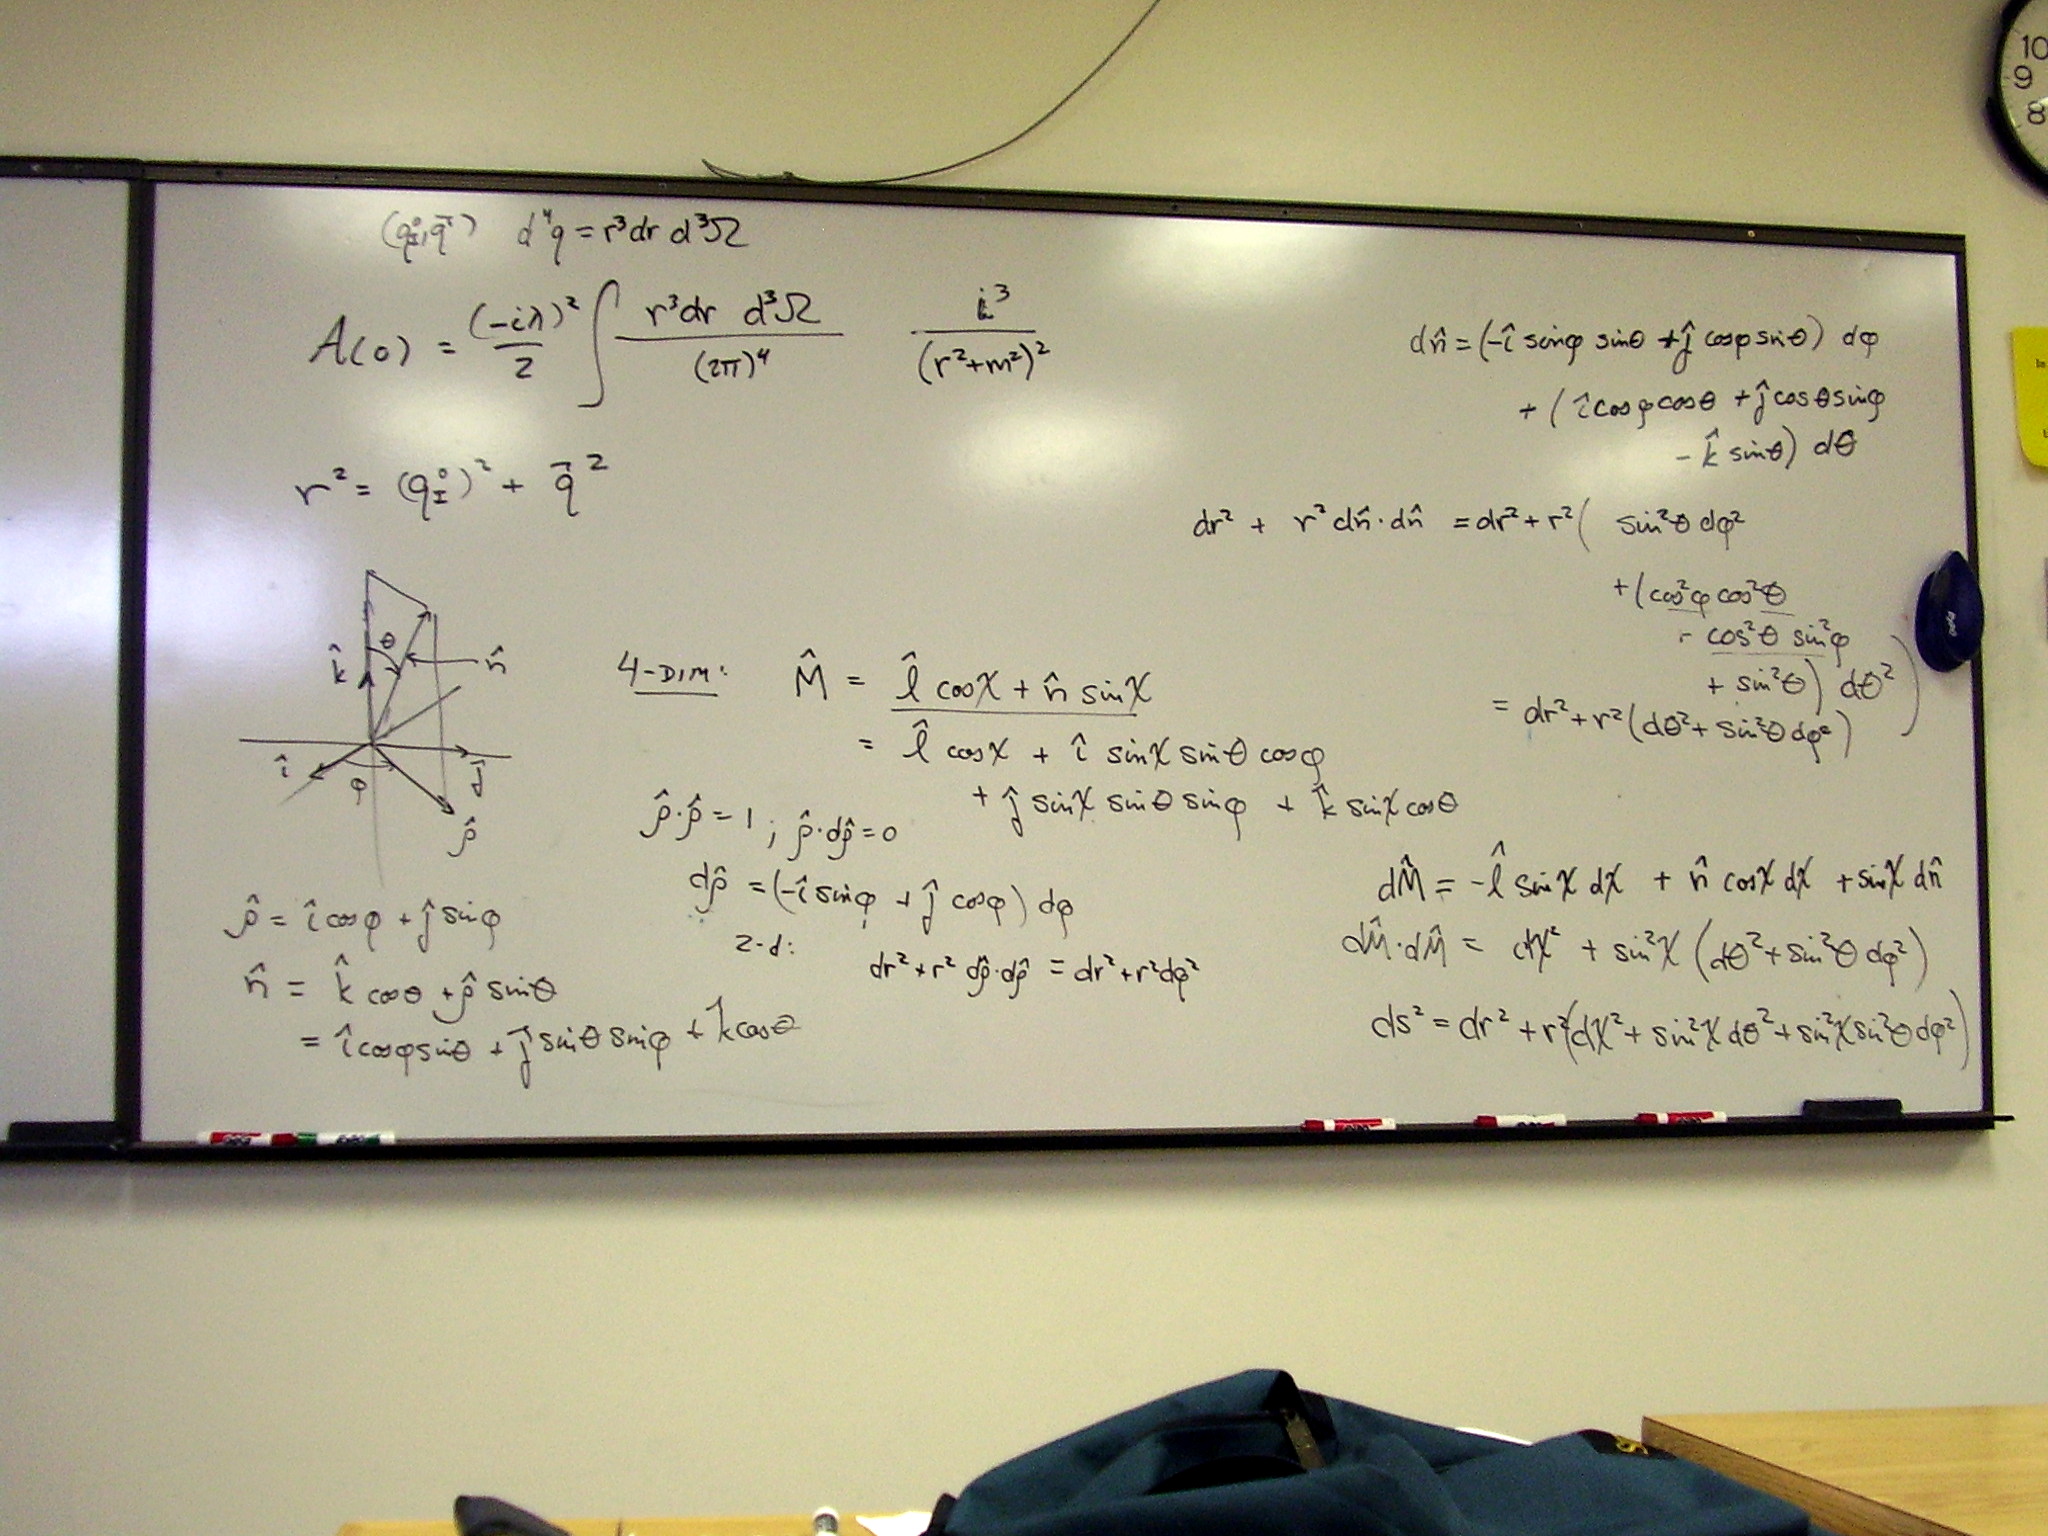 (q_I^0, q⃗) d⁴q = r³dr d³Ω
A(0) = (-iλ)²/2 ∫ r³dr d³Ω/(2π)⁴ i³/(r²+m²)²
r² = (q_I^0)² + q⃗²
k̂ θ n̂
î φ ĵ
ρ̂
ρ̂ = î cosφ + ĵ sinφ
n̂ = k̂ cosθ + ρ̂ sinθ
= î cosφ sinθ + ĵ sinθ sinφ + k̂ cosθ
4-DIM: M̂ = l̂ cosχ + n̂ sinχ
= l̂ cosχ + î sinχ sinθ cosφ
+ ĵ sinχ sinθ sinφ + k̂ sinχ cosθ
ρ̂·ρ̂ = 1 ; ρ̂·dρ̂ = 0
dρ̂ = (-î sinφ + ĵ cosφ) dφ
2-d: dr² + r² dρ̂·dρ̂ = dr² + r²dφ²
dn̂ = (-î sinφ sinθ + ĵ cosφ sinθ) dφ
+ (î cosφ cosθ + ĵ cosθ sinφ
- k̂ sinθ) dθ
dr² + r² dn̂·dn̂ = dr² + r² ( sin²θ dφ²
+ (cos²φ cos²θ
+ cos²θ sin²φ
+ sin²θ) dθ² )
= dr² + r²(dθ² + sin²θ dφ²)
dM̂ = -l̂ sinχ dχ + n̂ cosχ dχ + sinχ dn̂
dM̂·dM̂ = dχ² + sin²χ (dθ² + sin²θ dφ²)
ds² = dr² + r²(dχ² + sin²χ dθ² + sin²χ sin²θ dφ²)
10
9
8